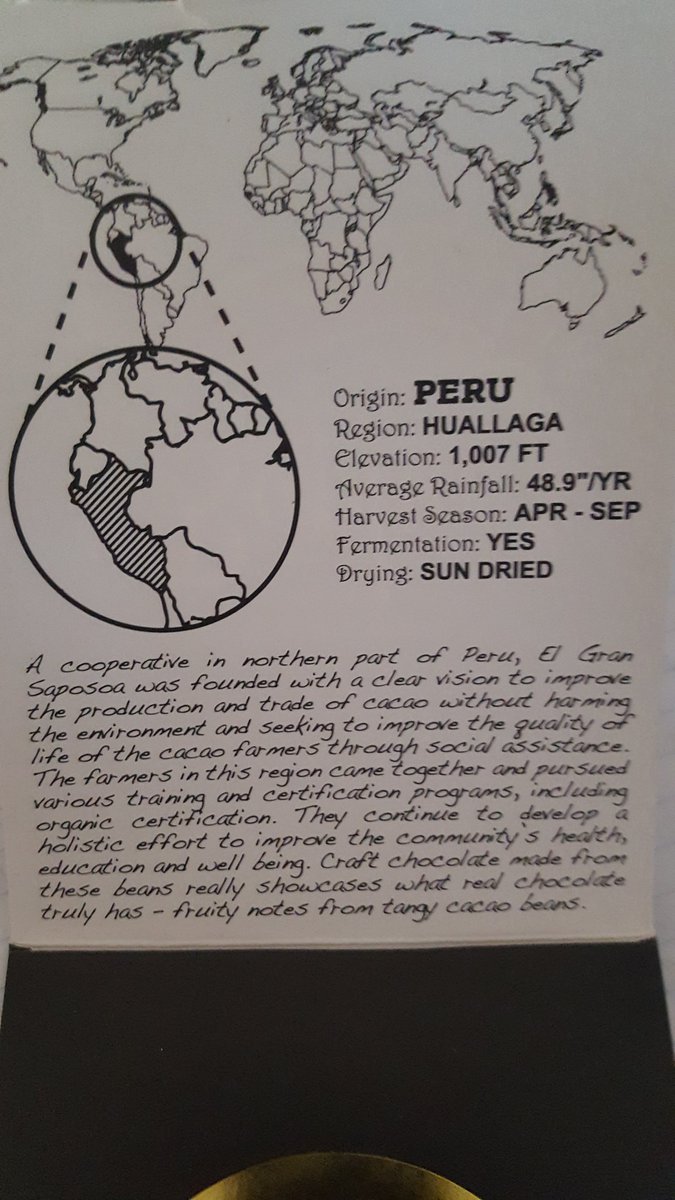 Origin: PERU
Region: HUALLAGA
Elevation: 1,007 FT
Average Rainfall: 48.9"/YR
Harvest Season: APR - SEP
Fermentation: YES
Drying: SUN DRIED
A cooperative in northern part of Peru, El Gran
Saposoa was founded with a clear vision to improve
the production and trade of cacao without harming
the environment and seeking to improve the quality of
life of the cacao farmers through social assistance.
The farmers in this region came together and pursued
various training and certification programs, including
organic certification. They continue to develop a
holistic effort to improve the community's health,
education and well being. Craft chocolate made from
these beans really showcases what real chocolate
truly has - fruity notes from tangy cacao beans.